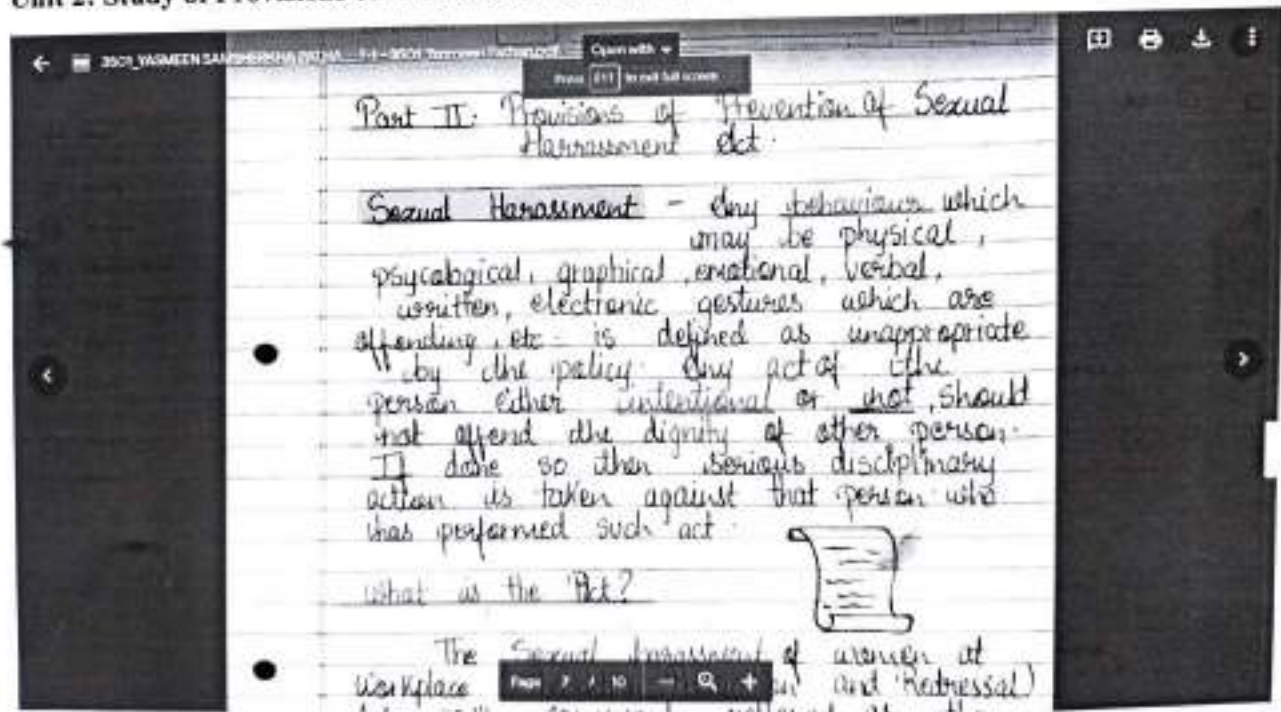 Unit 2: Study of Provisions
Open with
Press F11 to exit full screen
Part II: Provisions of Prevention of Sexual
Harrassment Act.
Sexual Harassment - Any behaviour which
may be physical,
psycological, graphical, emotional, verbal,
written, electronic gestures which are
offending, etc is defined as unappropriate
by the policy. Any act of the
person either intentional or not, should
not offend the dignity of other person.
If done so then serious disciplinary
action is taken against that person who
has performed such act.
what is the Act?
The Sexual harassment of women at
Workplace and Redressal)
Page 7 / 10